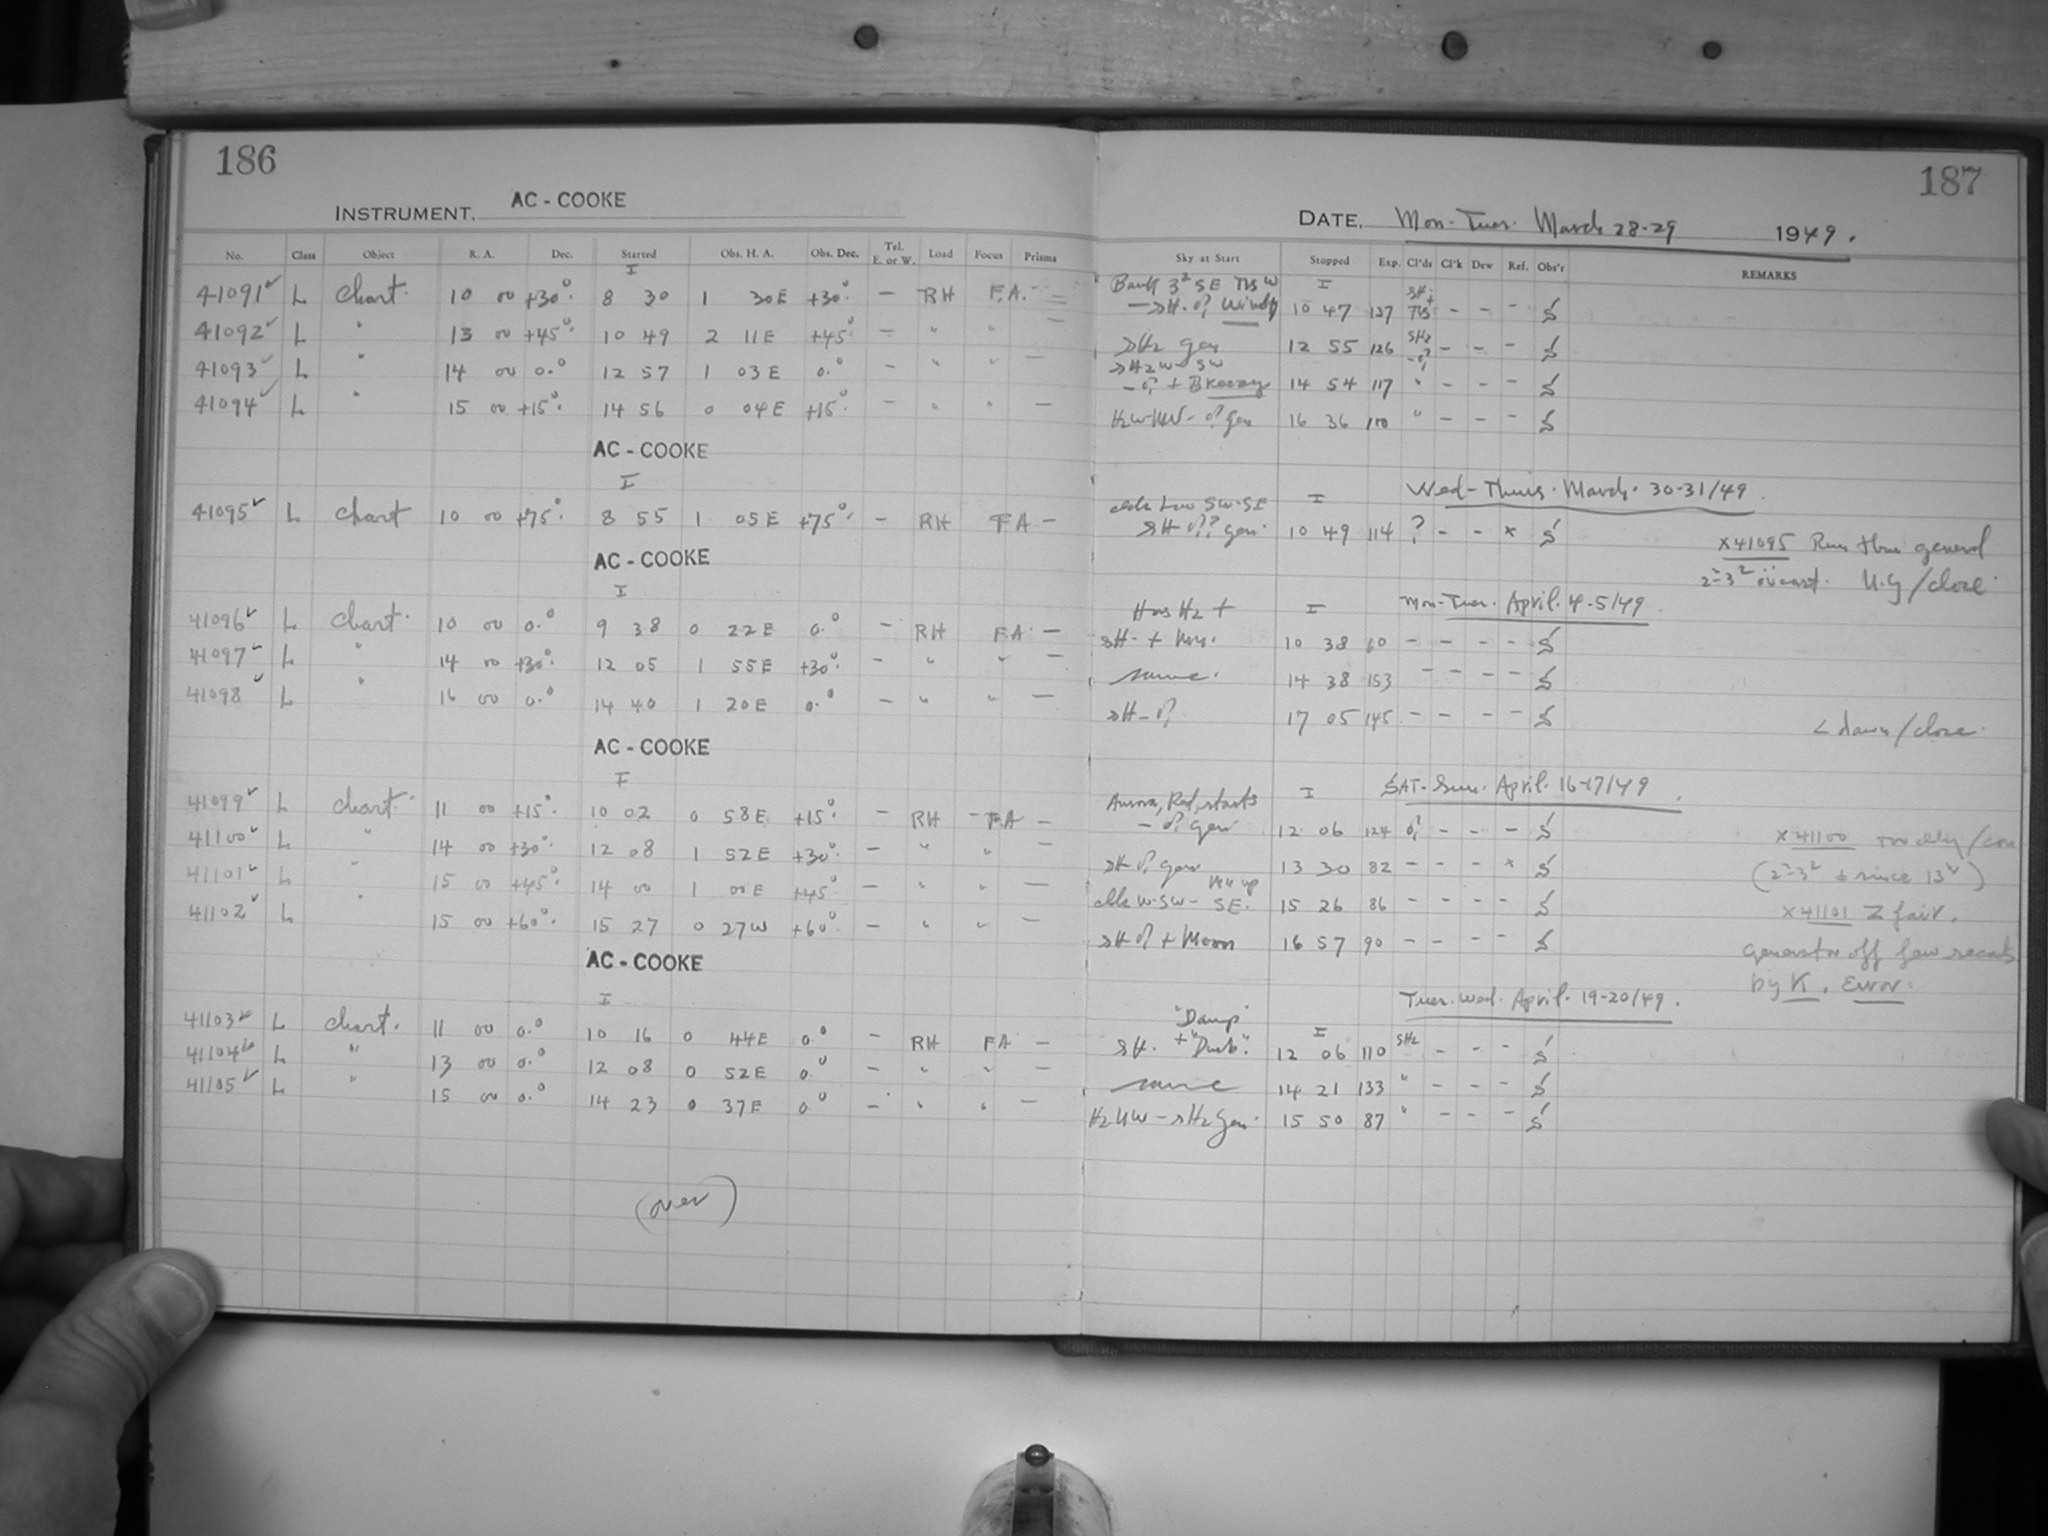 186
INSTRUMENT. AC - COOKE
No. Class Object R. A. Dec. Started Obs. H. A. Obs. Dec. Tel. E. or W. Load Focus Prisms
I
41091 L Chart. 10 00 +30° 8 30 1 30E +30° — RH F.A. —
41092 L " 13 00 +45° 10 49 2 11E +45° — " " —
41093 L " 14 00 0.° 12 57 1 03E 0.° — " " —
41094 L " 15 00 +15° 14 56 0 04E +15° — " " —
AC - COOKE
I
41095 L Chart 10 00 +75° 8 55 1 05E +75° — RH FA —
AC - COOKE
I
41096 L Chart. 10 00 0.° 9 38 0 22E 0.° — RH FA. —
41097 L " 14 00 +30° 12 05 1 55E +30° — " " —
41098 L " 16 00 0.° 14 40 1 20E 0.° — " " —
AC - COOKE
I
41099 L Chart. 11 00 +15° 10 02 0 58E +15° — RH FA —
41100 L " 14 00 +30° 12 08 1 52E +30° — " " —
41101 L " 15 00 +45° 14 00 1 00E +45° — " " —
41102 L " 15 00 +60° 15 27 0 27W +60° — " " —
AC - COOKE
I
41103 L Chart. 11 00 0.° 10 16 0 44E 0.° — RH FA —
41104 L " 13 00 0.° 12 08 0 52E 0.° — " " —
41105 L " 15 00 0.° 14 23 0 37E 0.° — " " —
(over)
187
DATE. Mon-Tues. March 28-29 1949.
Sky at Start Stopped Exp. Cl'ds Cl'k Dew Ref. Obs'r REMARKS
Bank 3² SE I
Windy 10 47 137 — — — S
sH2 gen 12 55 126 sH2 — — — S
sH2 W-SW
+ Breezy 14 54 117 " — — — S
gen 16 36 100 " — — — S
Wed-Thurs. March. 30-31/49.
Low SW-SE I
sH gen. 10 49 114 ? — — x S
x41095 general
2-3² overcast. U.G/close.
Mon-Tues. April. 4-5/49.
Has H2 + I
sH- + 10 38 60 — — — — S
same. 14 38 153 — — — — S
sH- 17 05 145 — — — — S
< dawn/close.
SAT-Sun. April. 16-17/49.
Aurora, I
gen 12 06 124 — — — S
sH gen 13 30 82 — — — x S
W-SW- SE. 15 26 86 — — — — S
sH + Moon 16 57 90 — — — — S
x41100
(2-3² ± since 13)
x41101 Z fair.
Generator off few seconds
by K. Error.
Tues-Wed. April. 19-20/49.
"Damp" I
sH. + 12 06 110 sH2 — — — S
same 14 21 133 " — — — S
H2 NW - sH2 gen. 15 50 87 " — — — S